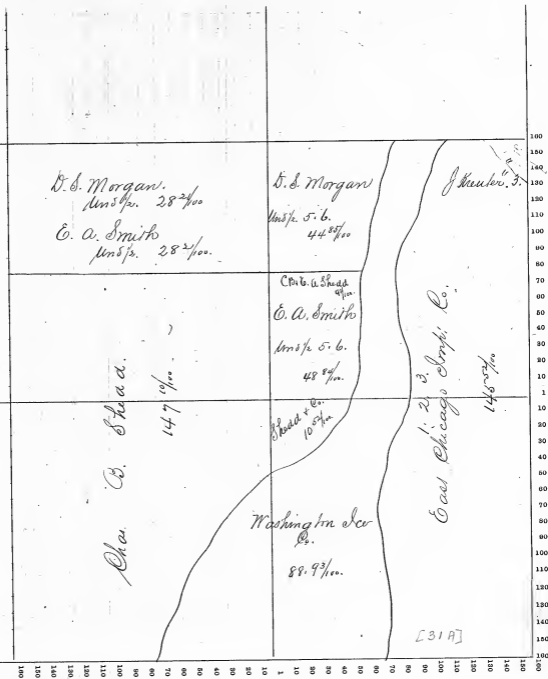 D. S. Morgan.
Und ½. 28 2/100
E. A. Smith
Und ½. 28 2/100.
D. S. Morgan
Und ½ 5.6.
44 85/100
J Kreuter. 3.
E. A. Smith
Und ½ 5.6.
48 84/100.
Shedd & Co.
10 52/100
Chas. B. Shedd.
147 10/100
East Chicago Imp. Co.
1. 2. 3.
145 52/100
Washington Ice
Co.
88.93/100.
[31A]
160
150
140
130
120
110
100
90
80
70
60
50
40
30
20
10
1
10
20
30
40
50
60
70
80
90
100
110
120
130
140
150
160
160 150 140 130 120 110 100 90 80 70 60 50 40 30 20 10 1 10 20 30 40 50 60 70 80 90 100 110 120 130 140 150 160